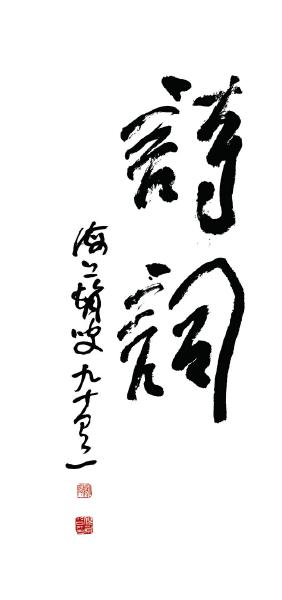 詩詞
海上 叟九十又一